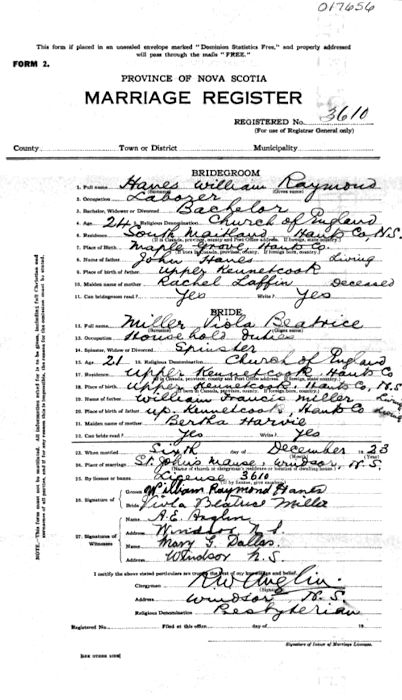 017656
This form if placed in an unsealed envelope marked "Dominion Statistics Free," and properly addressed
will pass through the mails "FREE."
FORM 2.
PROVINCE OF NOVA SCOTIA
MARRIAGE REGISTER
REGISTERED No. 3610
(For use of Registrar General only)
County Town or District Municipality
BRIDEGROOM
1. Full name Hanes William Raymond
(Surname) (Given name)
2. Occupation Laborer
3. Bachelor, Widower or Divorced Bachelor
4. Age 24 5. Religious Denomination Church of England
6. Residence South Maitland Hants Co, N.S.
7. Place of Birth Maple Grove, Hants Co.
8. Name of father John Hanes Living
9. Place of birth of father Upper Kennetcook
10. Maiden name of mother Rachel Laffin Deceased
11. Can bridegroom read? Yes Write? Yes
BRIDE
12. Full name Miller Viola Beatrice
13. Occupation Household Duties
14. Spinster, Widow or Divorced Spinster
15. Age 21 16. Religious Denomination Church of England
17. Residence Upper Kennetcook, Hants Co
18. Place of birth Upper Kennetcook, Hants Co, N.S
19. Name of father William Francis Miller Living
20. Place of birth of father Up. Kennetcook, Hants Co
21. Maiden name of mother Bertha Harvie Living
22. Can bride read? Yes Write? Yes
23. When married Sixth day of December 1923
24. Place of marriage St. John's Manse, Windsor, N.S.
(Name of church or clergyman's residence or balance of dwelling house)
25. By license or banns License 3610
26. Signature of Groom William Raymond Hanes
Bride Viola Beatrice Miller
27. Signature of Witnesses Name A.E. Anglin
Address Windsor N.S.
Name Mary G Dallas
Address Windsor N.S.
I certify the above stated particulars are true to the best of my knowledge and belief.
Clergyman R W Anglin.
Address Windsor N.S.
Religious Denomination Presbyterian
Registered No. Filed at this office day of 19
Signature of Issuer of Marriage Licenses
SEE OTHER SIDE